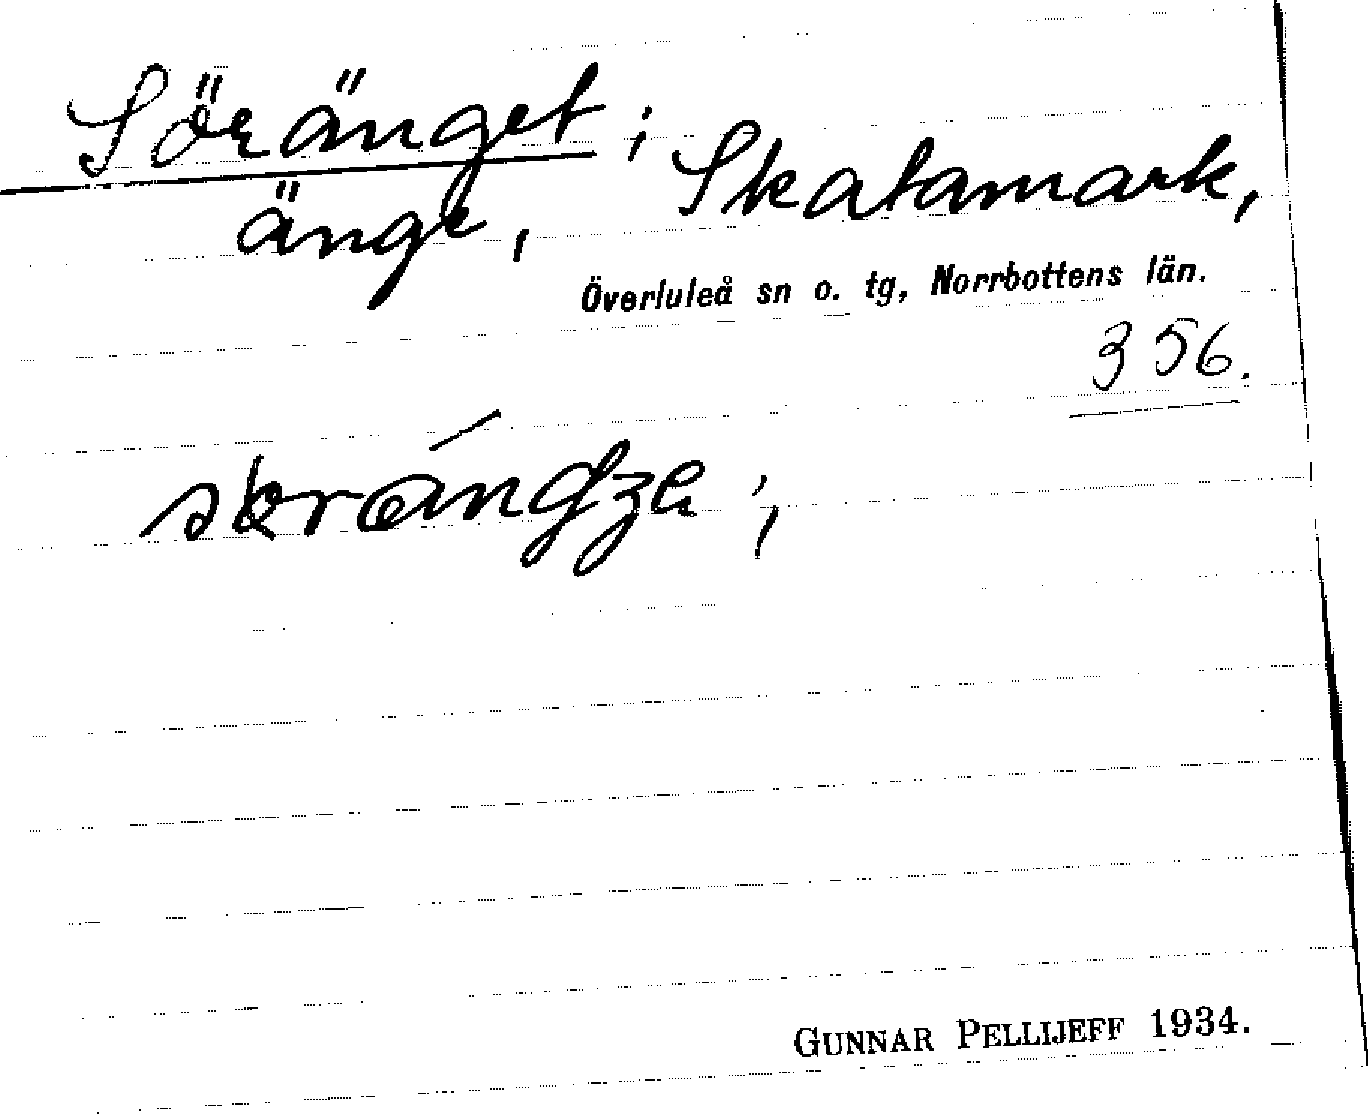 Söränget ; Skatamark,
änge,
Överluleå sn o. tg, Norrbottens län.
356.
GUNNAR PELLIJEFF 1934.